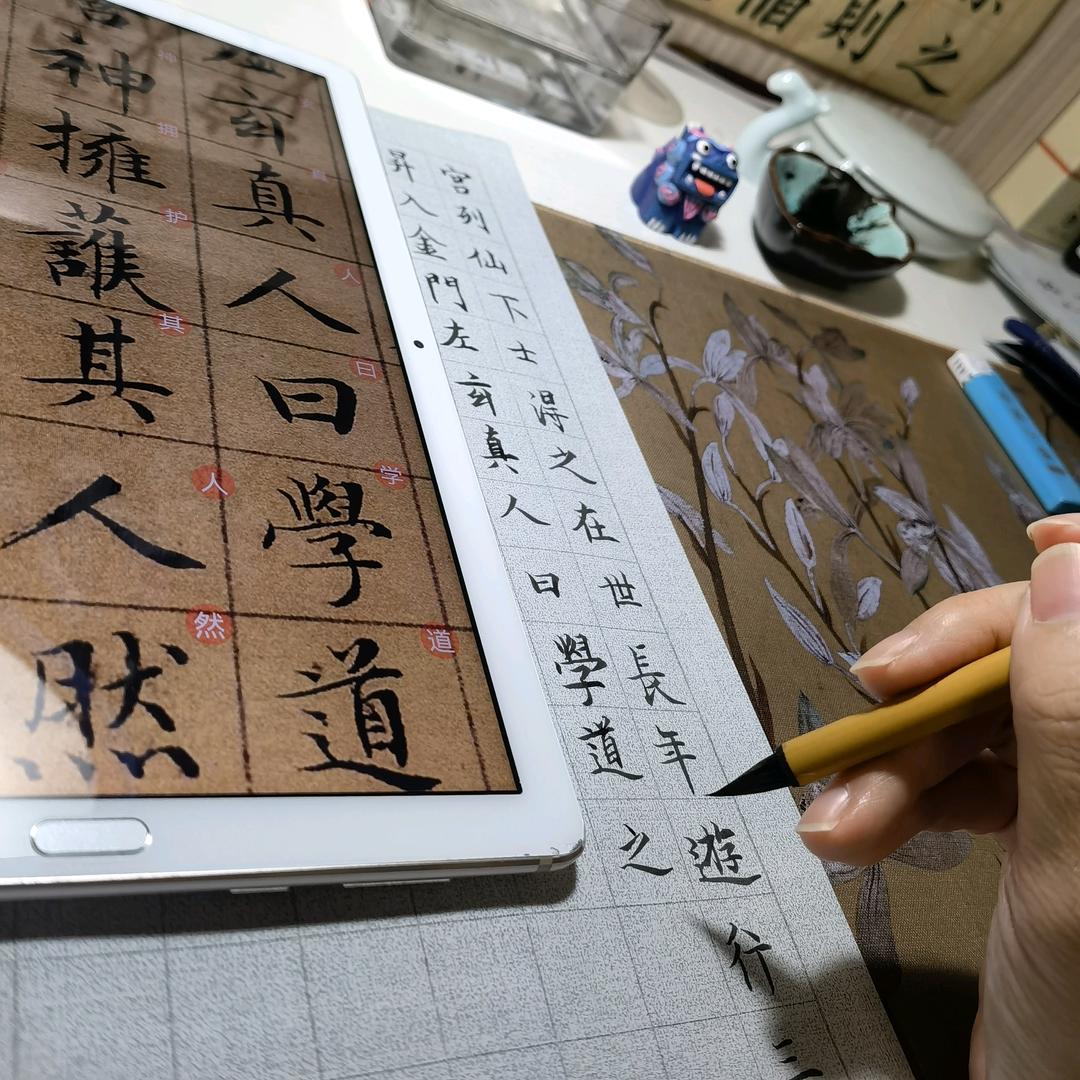 宮列仙下士得之在世長年遊行三
昇入金門左玄真人曰學道之
玄真人曰學道
真人曰学道
神擁護其人然
神拥护其人然
則之